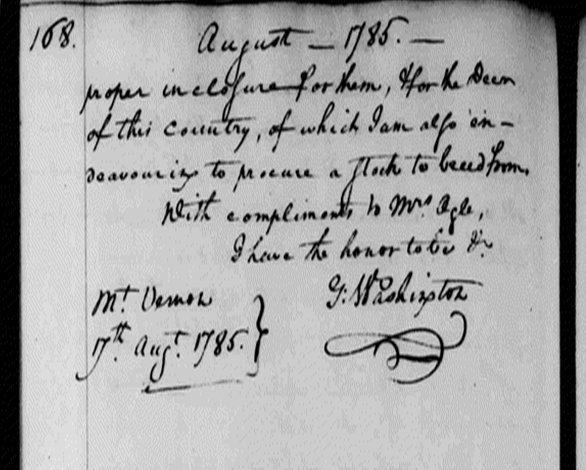 168.
August — 1785. —
proper inclosure for them, & for the Deer
of this Country, of which I am also en-
deavouring to procure a stock to breed from.
With compliments to Mrs Ogle,
I have the honor to be &c
G: Washington
Mt. Vernon
17th. Augt. 1785.